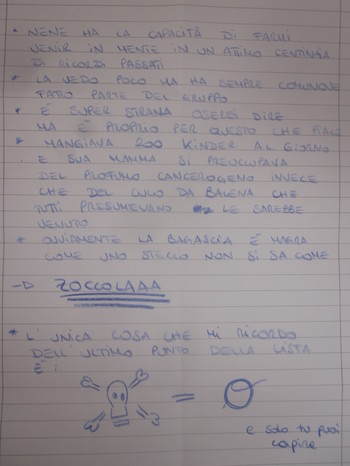 * NENE HA LA CAPACITÀ DI FARMI
VENIR IN MENTE IN UN ATTIMO CENTINAIA
DI RICORDI PASSATI
* LA VEDO POCO MA HA SEMPRE COMUNQUE
FATTO PARTE DEL GRUPPO
* È SUPER STRANA OSEREI DIRE
MA È PROPRIO PER QUESTO CHE PIACE
* MANGIAVA 200 KINDER AL GIORNO
E SUA MAMMA SI PREOCUPAVA
DEL PROFUMO CANCEROGENO INVECE
CHE DEL CULO DA BALENA CHE
TUTTI PRESUMEVANO LE SAREBBE
VENUTO
* OVVIAMENTE LA BAGASCIA È MAGRA
COME UNO STECCO NON SI SA COME
ZOCCOLAAA
* L'UNICA COSA CHE MI RICORDO
DELL'ULTIMO PUNTO DELLA LISTA
È:
=
e solo tu puoi
capire